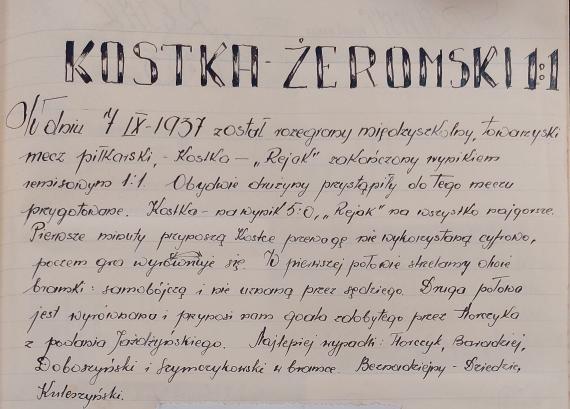 KOSTKA - ŻEROMSKI 1:1
W dniu 7 IX-1937 został rozegrany międzyszkolny, towarzyski
mecz piłkarski, - Kostka - „Rejak" zakończony wynikiem
remisowym 1:1. Obydwie drużyny przystąpiły do tego meczu
przygotowane. Kostka - na wynik 5:0, „Rejak" na wszystko najgorsze.
Pierwsze minuty przynoszą Kostce przewagę nie wykorzystaną cyfrowo,
poczem gra wyrównuje się. W pierwszej połowie strzelamy dwie
bramki: samobójczą i nie uznaną przez sędziego. Druga połowa
jest wyrównana i przynosi nam goala zdobytego przez Florczyka
z podania Jażdżyńskiego. Najlepiej wypadli: Florczyk, Banaśkiej,
Doboszyński i Szymczykowski w bramce. Beznadziejny - Dziedzic,
Kuleszyński.